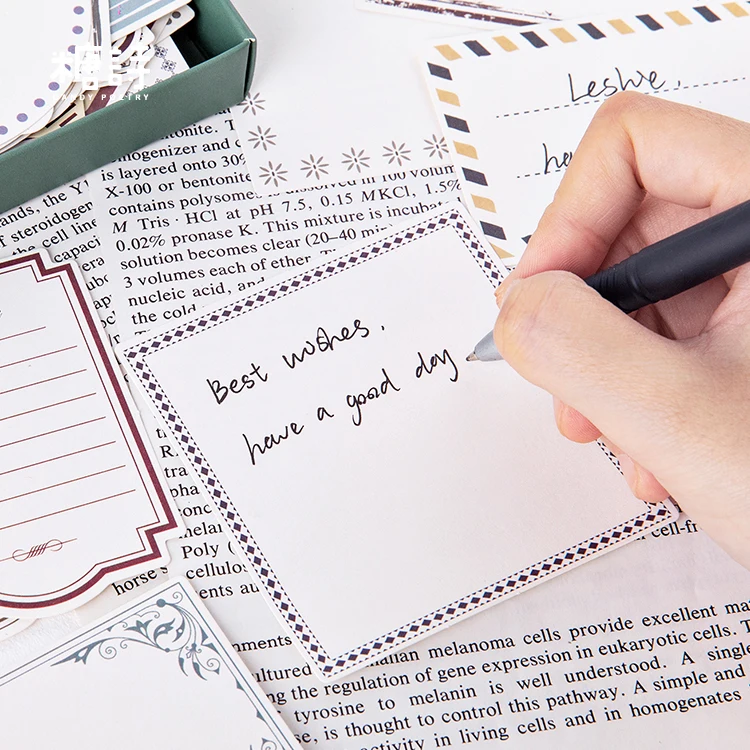 糖詩
CANDY POETRY
Leslie,
Best wishes,
have a good day
tonite. T
mogenizer and
is layered onto 30%
X-100 or bentonite
contains polysomes dissolved in 100 volum
M Tris · HCl at pH 7.5, 0.15 M KCl, 1.5%
0.02% pronase K. This mixture is incubat
solution becomes clear (20–40 mi
3 volumes each of ether
nucleic acid, and
the cold.
ands, the Y
of steroidogen
the cell line
capaci
Poly (
horse s
cellulos
ents au
cell-fr
nments
ultured mammalian melanoma cells provide excellent ma
ng the regulation of gene expression in eukaryotic cells. T
tyrosine to melanin is well understood. A single
se, is thought to control this pathway. A simple and
activity in living cells and in homogenates